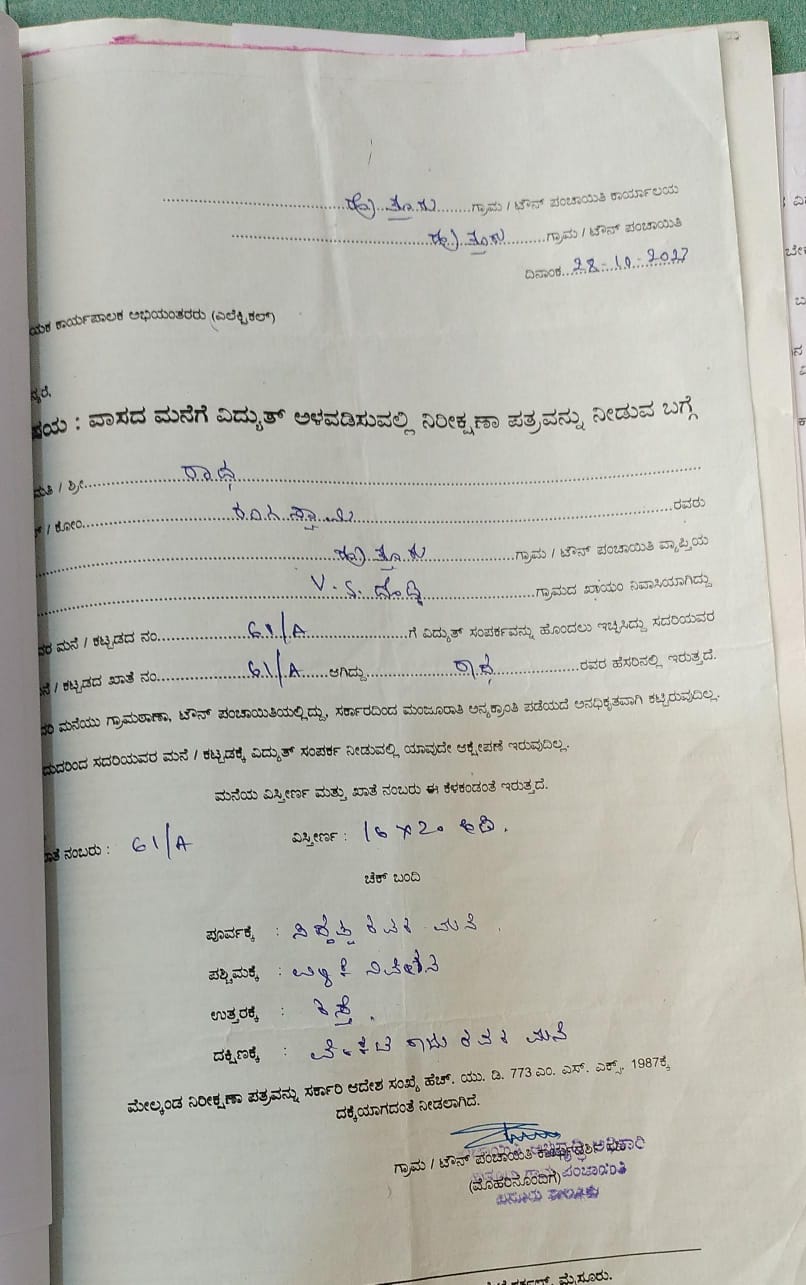 ................ಗ್ರಾಮ / ಟೌನ್ ಪಂಚಾಯಿತಿ ಕಾರ್ಯಾಲಯ
................ಗ್ರಾಮ / ಟೌನ್ ಪಂಚಾಯಿತಿ
ದಿನಾಂಕ...28-10-2027
ಯಕ ಕಾರ್ಯಪಾಲಕ ಅಭಿಯಂತರರು (ಎಲೆಕ್ಟ್ರಿಕಲ್)
ನ್ಯರೆ,
ಷಯ : ವಾಸದ ಮನೆಗೆ ವಿದ್ಯುತ್ ಅಳವಡಿಸುವಲ್ಲಿ ನಿರೀಕ್ಷಣಾ ಪತ್ರವನ್ನು ನೀಡುವ ಬಗ್ಗೆ
ಮತಿ / ಶ್ರೀ......ರಾಧ......
/ ಕೋಂ......ರಂಗಸ್ವಾಮಿ......ರವರು
................ಗ್ರಾಮ / ಟೌನ್ ಪಂಚಾಯಿತಿ ವ್ಯಾಪ್ತಿಯ
......V. S. ದೊಡ್ಡಿ......ಗ್ರಾಮದ ಖಾಯಂ ನಿವಾಸಿಯಾಗಿದ್ದು
ವರ ಮನೆ / ಕಟ್ಟಡದ ನಂ......61/A......ಗೆ ವಿದ್ಯುತ್ ಸಂಪರ್ಕವನ್ನು ಹೊಂದಲು ಇಚ್ಛಿಸಿದ್ದು ಸದರಿಯವರ
ನೆ / ಕಟ್ಟಡದ ಖಾತೆ ನಂ......61/A......ಆಗಿದ್ದು......ರಾಧ......ರವರ ಹೆಸರಿನಲ್ಲಿ ಇರುತ್ತದೆ.
ರಿ ಮನೆಯು ಗ್ರಾಮಠಾಣಾ, ಟೌನ್ ಪಂಚಾಯಿತಿಯಲ್ಲಿದ್ದು, ಸರ್ಕಾರದಿಂದ ಮಂಜೂರಾತಿ ಅನ್ಯಕ್ರಾಂತಿ ಪಡೆಯದೆ ಅನಧಿಕೃತವಾಗಿ ಕಟ್ಟಿರುವುದಿಲ್ಲ.
ದುದರಿಂದ ಸದರಿಯವರ ಮನೆ / ಕಟ್ಟಡಕ್ಕೆ ವಿದ್ಯುತ್ ಸಂಪರ್ಕ ನೀಡುವಲ್ಲಿ ಯಾವುದೇ ಆಕ್ಷೇಪಣೆ ಇರುವುದಿಲ್ಲ.
ಮನೆಯ ವಿಸ್ತೀರ್ಣ ಮತ್ತು ಖಾತೆ ನಂಬರು ಈ ಕೆಳಕಂಡಂತೆ ಇರುತ್ತದೆ.
ಾತೆ ನಂಬರು : 61/A ವಿಸ್ತೀರ್ಣ : 16 x 20 ಅಡಿ.
ಚೆಕ್ ಬಂದಿ
ಪೂರ್ವಕ್ಕೆ : ರವರ ಮನೆ
ಪಶ್ಚಿಮಕ್ಕೆ : ನಿವೇಶನ
ಉತ್ತರಕ್ಕೆ : ರಸ್ತೆ.
ದಕ್ಷಿಣಕ್ಕೆ : ವೆಂಕಟರಾಮು ರವರ ಮನೆ
ಮೇಲ್ಕಂಡ ನಿರೀಕ್ಷಣಾ ಪತ್ರವನ್ನು ಸರ್ಕಾರಿ ಆದೇಶ ಸಂಖ್ಯೆ ಹೆಚ್. ಯು. ಡಿ. 773 ಎಂ. ಎಸ್. ಎಕ್ಸ್. 1987ಕ್ಕೆ
ದಕ್ಕೆಯಾಗದಂತೆ ನೀಡಲಾಗಿದೆ.
ಗ್ರಾಮ / ಟೌನ್ ಪಂಚಾಯಿತಿ
(ಮೊಹರಿನೊಂದಿಗೆ)
ಮೈಸೂರು.